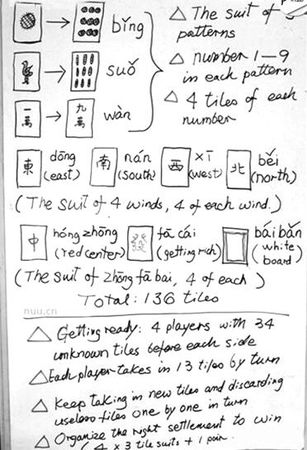 bǐng
suǒ
一萬 九萬 wàn
△ The suit of patterns
△ number 1–9 in each pattern
△ 4 tiles of each number
東 dōng (east) 南 nán (south) 西 xī (west) 北 běi (north)
(The suit of 4 winds, 4 of each wind.)
中 hóng zhōng (red center) 發 fā cái (getting rich) bái bǎn (white board)
(The suit of zhōng fā bái, 4 of each)
Total: 136 tiles
nuu.cn
△ Getting ready: 4 players with 34
unknown tiles before each side
△ Each player takes in 13 tiles by turn
△ Keep taking in new tiles and discarding
useless tiles one by one in turn
△ Organize the right settlement to win
(4 × 3 tile suits + 1 pair